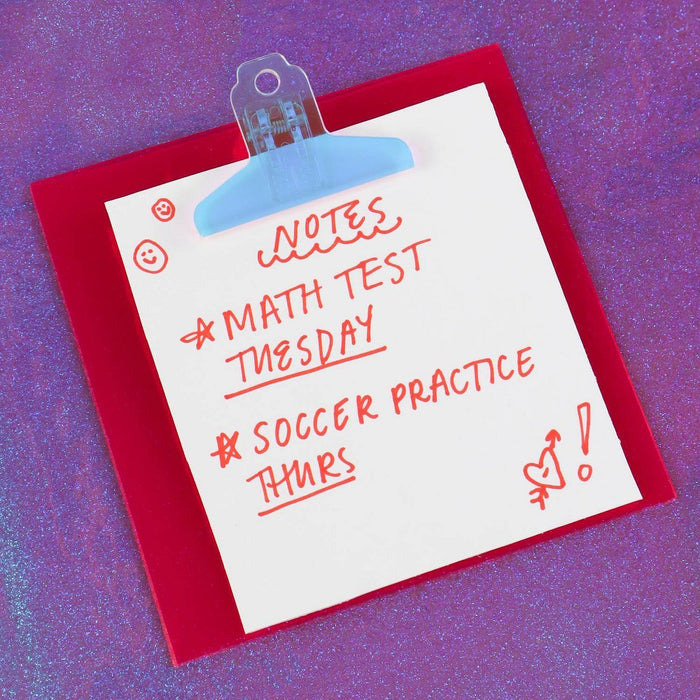 NOTES
MATH TEST
TUESDAY
SOCCER PRACTICE
THURS
!